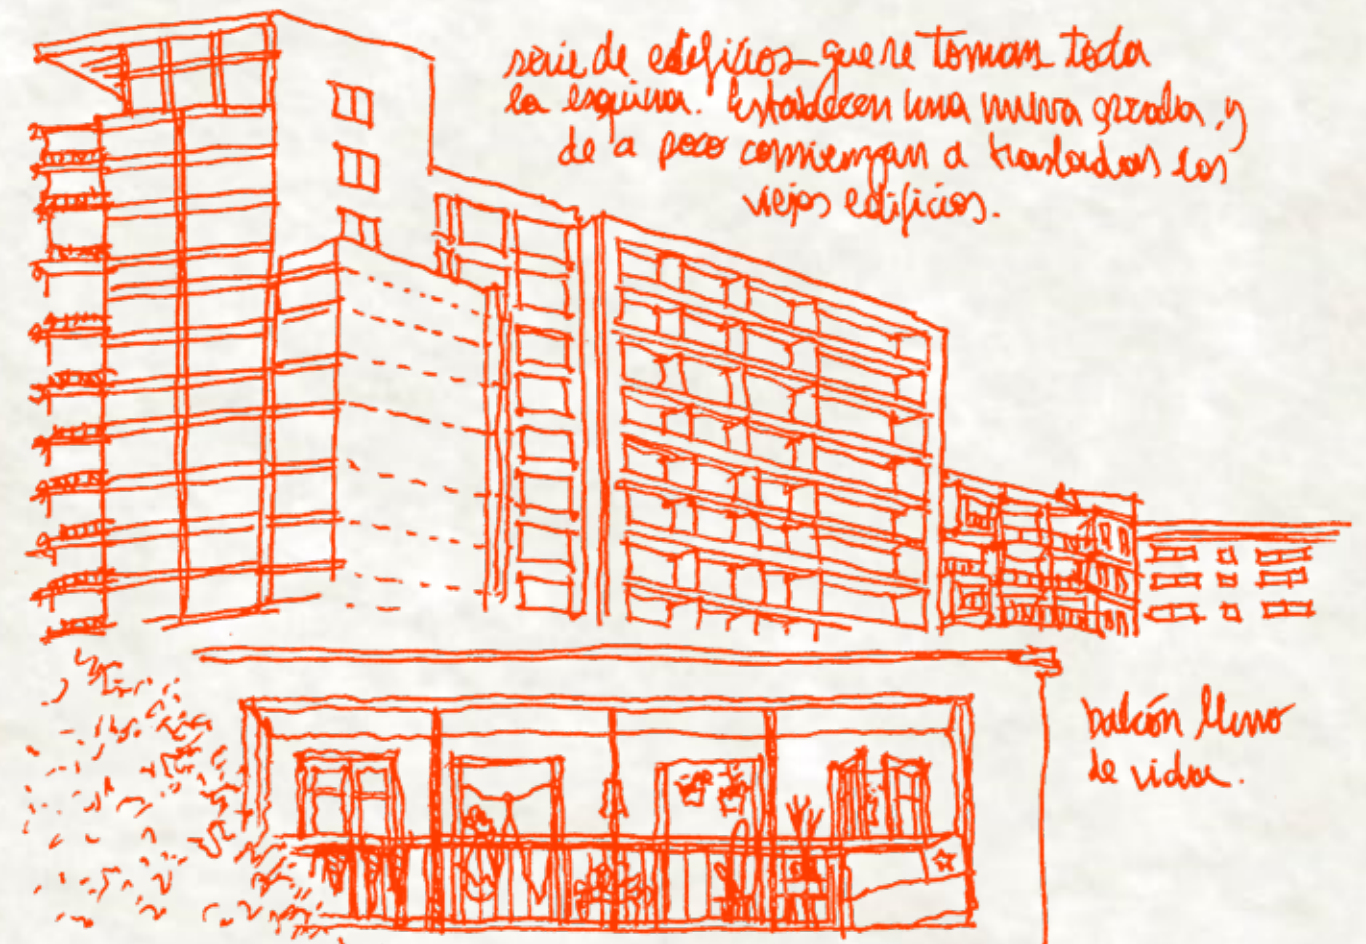 serie de edificios que se toman toda
la esquina. Establecen una nueva escala, y
de a poco comienzan a trasladar los
viejos edificios.
balcón lleno
de vida.